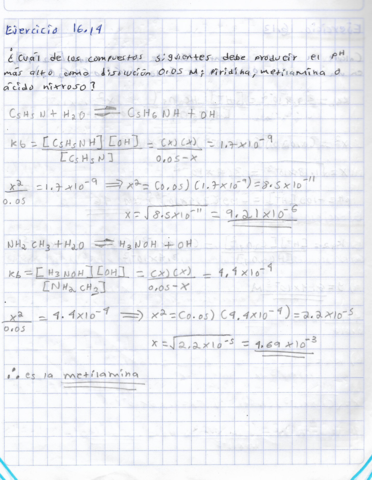 Ejercicio 16.14
¿Cuál de los compuestos siguientes debe producir el pH
más alto como disolución 0.05 M; Piridina, metilamina o
ácido nitroso?
C5H5N + H2O ⇌ C5H6NH + OH
Kb = [C5H5NH][OH] / [C5H5N] = (x)(x) / 0.05-x = 1.7x10^-9
x^2 / 0.05 = 1.7x10^-9 ⇒ x^2 = (0.05)(1.7x10^-9) = 8.5x10^-11
x = √8.5x10^-11 = 9.21x10^-6
NH2CH3 + H2O ⇌ H3NOH + OH
Kb = [H3NOH][OH] / [NH2CH3] = (x)(x) / 0.05-x = 4.4x10^-4
x^2 / 0.05 = 4.4x10^-4 ⇒ x^2 = (0.05)(4.4x10^-4) = 2.2x10^-5
x = √2.2x10^-5 = 4.69x10^-3
∴ es la metilamina